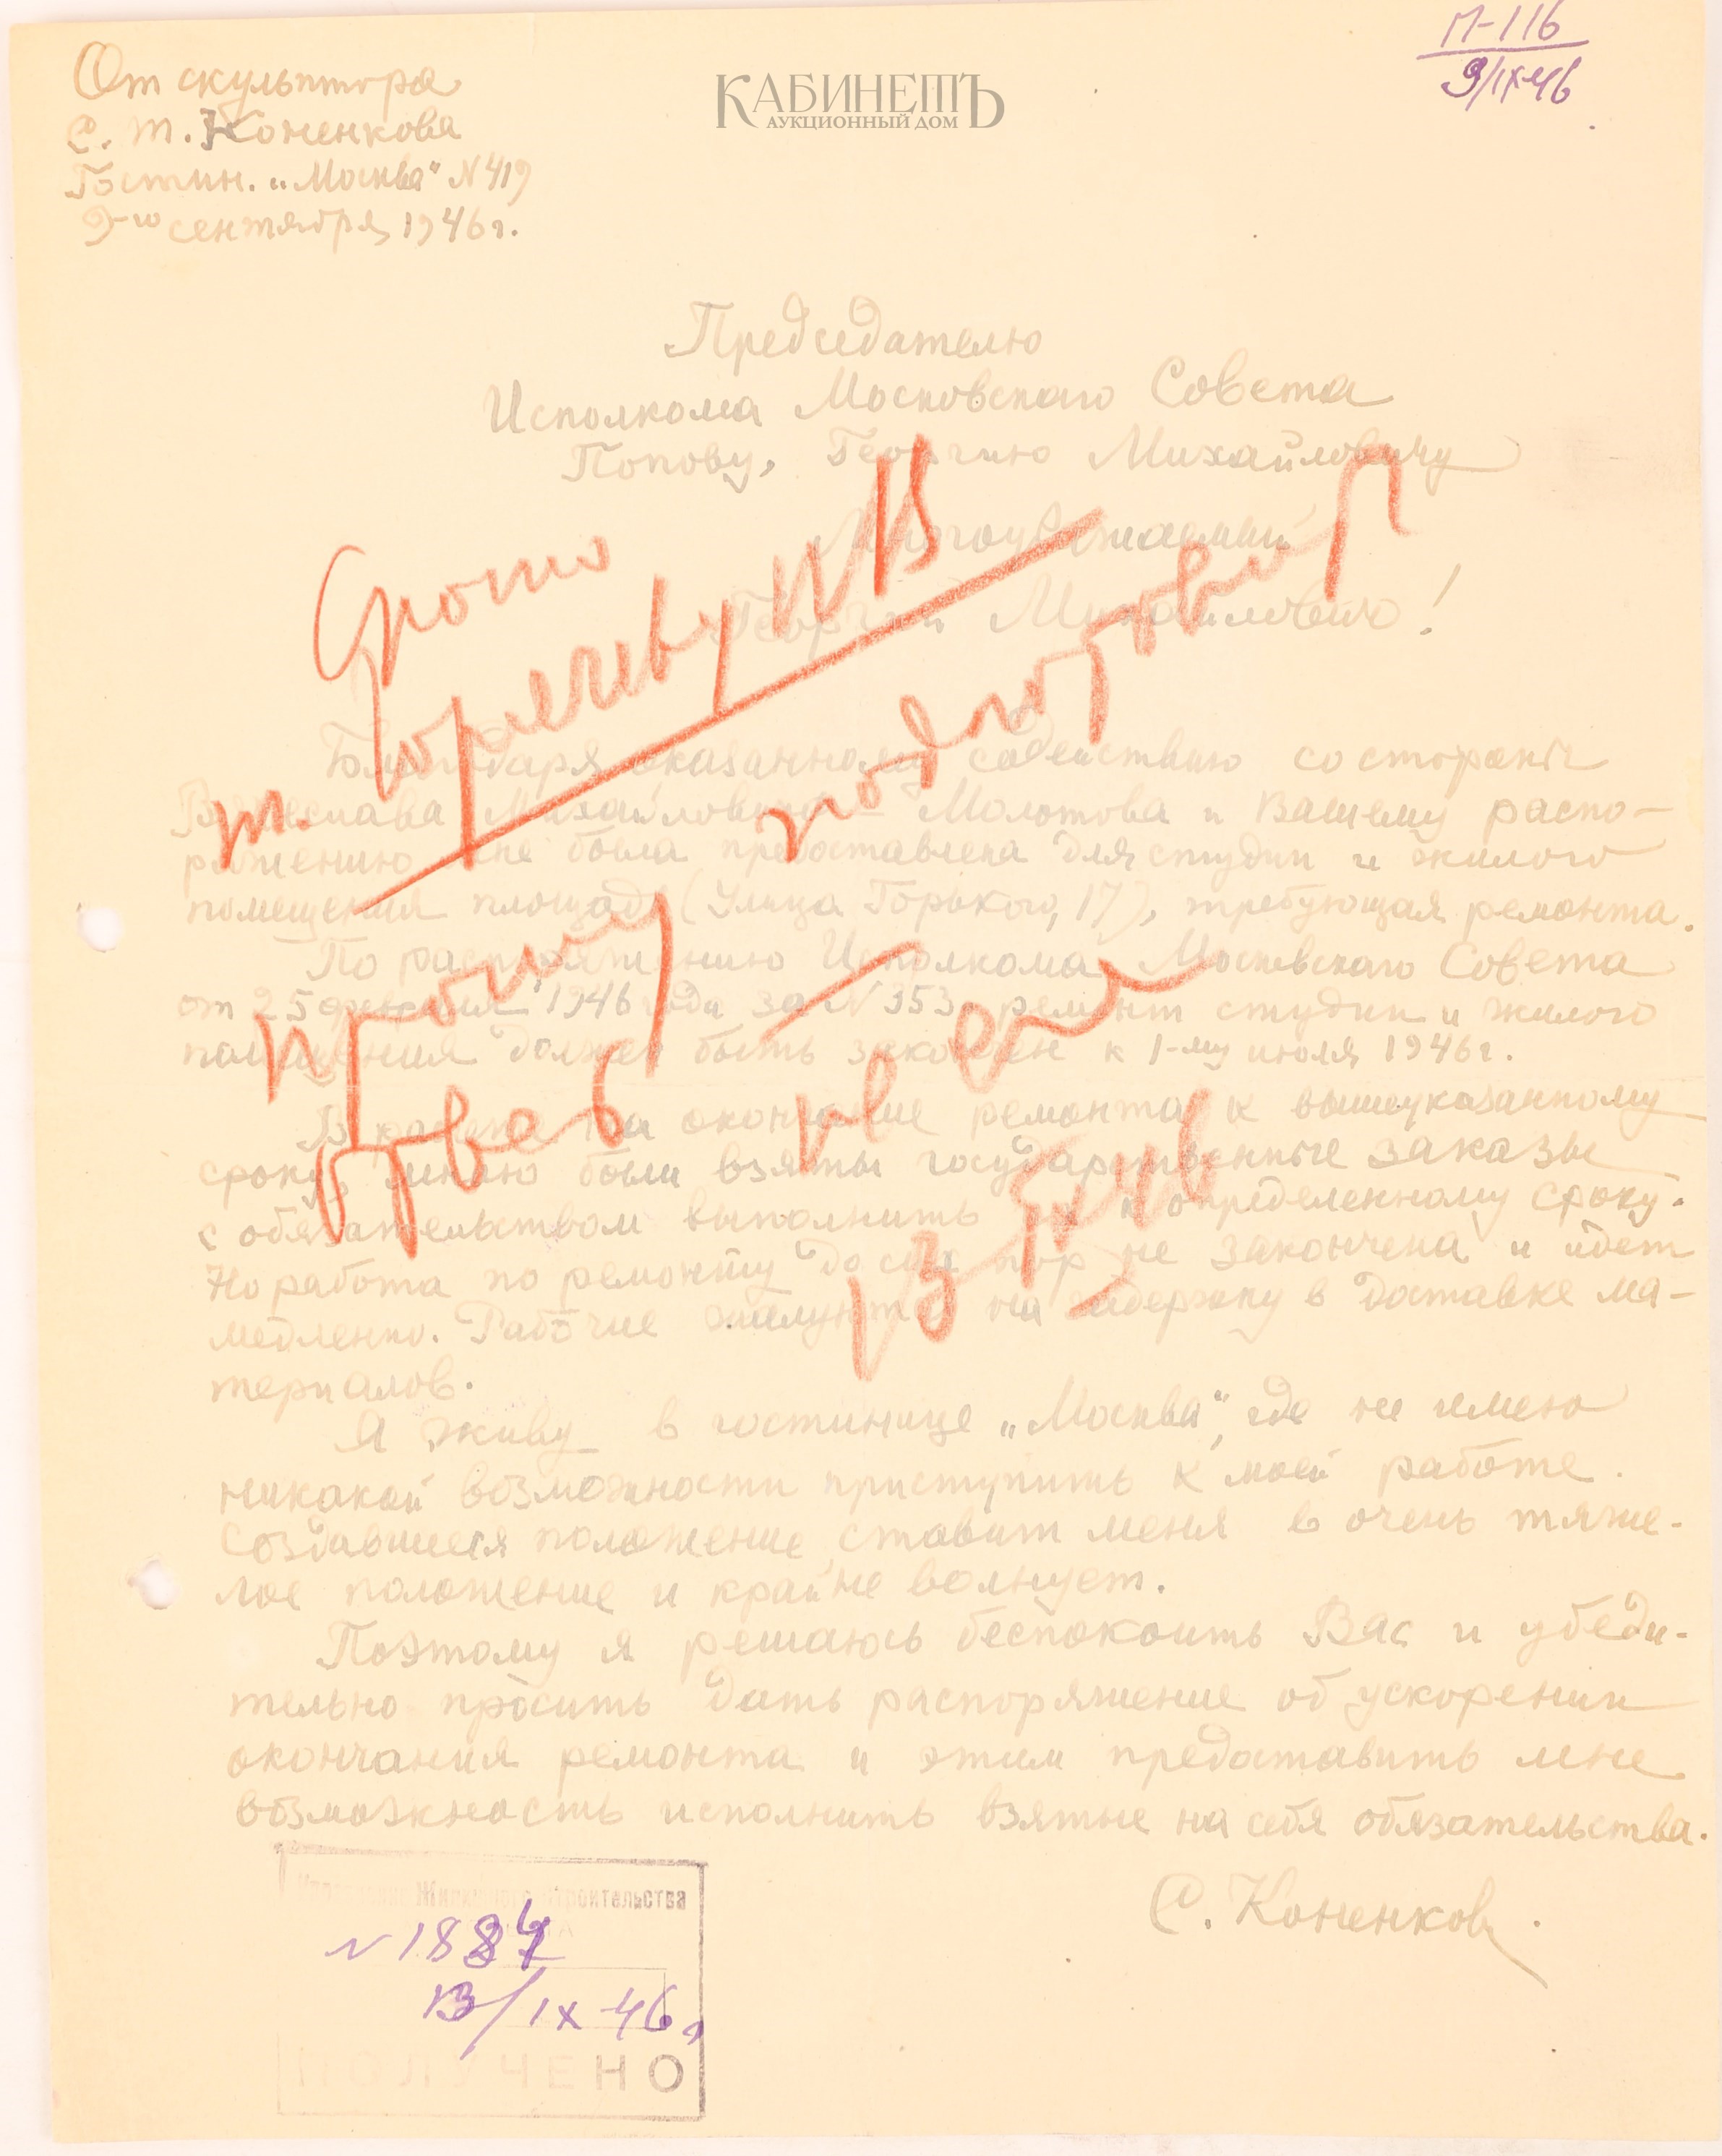 П-116
9/IX-46
КАБИНЕТЪ
АУКЦИОННЫЙ ДОМ
От скульптора
С. Т. Коненкова
Гостин. „Москва" N 419
9-го сентября 1946 г.
Председателю
Исполкома Московскаго Совета
Попову, Георгию Михайловичу
Многоуважаемый
Георгий Михайлович!
Благодаря оказанному содействию со стороны
Вячеслава Михайловича Молотова и Вашему распо-
ряжению мне была предоставлена для студии и жилого
помещения площадь (Улица Горького, 17), требующая ремонта.
По распоряжению Исполкома Московскаго Совета
от 25 1946 года за N 353 ремонт студии и жилого
помещения должен быть закончен к 1-му июля 1946 г.
В расчете на окончание ремонта к вышеуказанному
сроку, мною были взяты государственные заказы
с обязательством выполнить их к определенному сроку.
Но работа по ремонту до сих пор не закончена и идет
медленно. Рабочие жалуются на задержку в доставке ма-
териалов.
Я живу в гостинице „Москва", где не имею
никакой возможности приступить к моей работе.
Создавшееся положение ставит меня в очень тяже-
лое положение и крайне волнует.
Поэтому я решаюсь беспокоить Вас и убеди-
тельно просить дать распоряжение об ускорении
окончания ремонта и этим предоставить мне
возможность исполнить взятые на себя обязательства.
С. Коненков.
Срочно
т. Горячеву И В
прошу подготовить
ответ
13 IX 46
Жилищного Строительства
N 1884
13/IX-46
ПОЛУЧЕНО